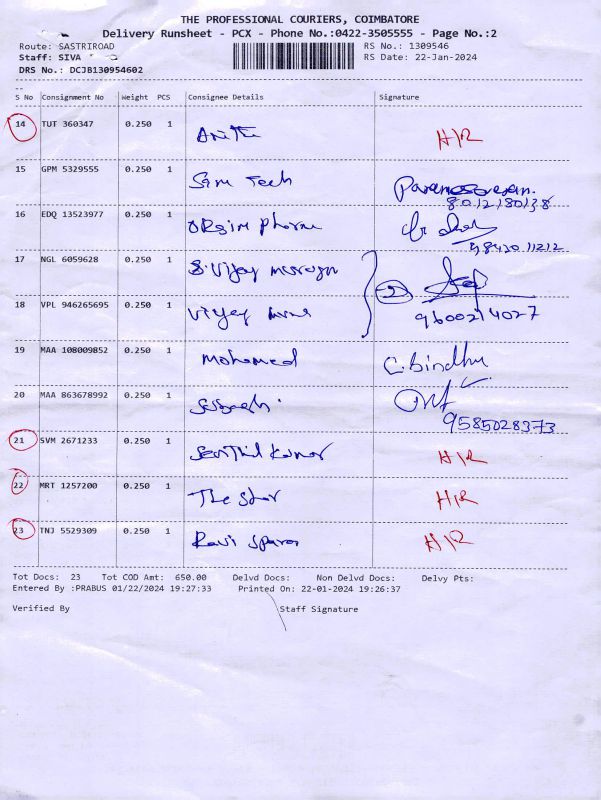 THE PROFESSIONAL COURIERS, COIMBATORE
Delivery Runsheet - PCX - Phone No.:0422-3505555 - Page No.:2
Route: SASTRIROAD RS No.: 1309546
Staff: SIVA RS Date: 22-Jan-2024
DRS No.: DCJB130954602
S No Consignment No Weight PCS Consignee Details Signature
14 TUT 360347 0.250 1 H/R
15 GPM 5329555 0.250 1 Sam Tech
8012180138
16 EDQ 13523977 0.250 1
17 NGL 6059628 0.250 1 S. Vijay
18 VPL 946265695 0.250 1 Vijay
9600214027
19 MAA 108009852 0.250 1 Mohamed C. Bindhu
20 MAA 863678992 0.250 1
9585028373
21 SVM 2671233 0.250 1 Senthil Kumar H/R
22 MRT 1257200 0.250 1 The Star H/R
23 TNJ 5529309 0.250 1 Ravi H/R
Tot Docs: 23 Tot COD Amt: 650.00 Delvd Docs: Non Delvd Docs: Delvy Pts:
Entered By :PRABUS 01/22/2024 19:27:33 Printed On: 22-01-2024 19:26:37
Verified By Staff Signature